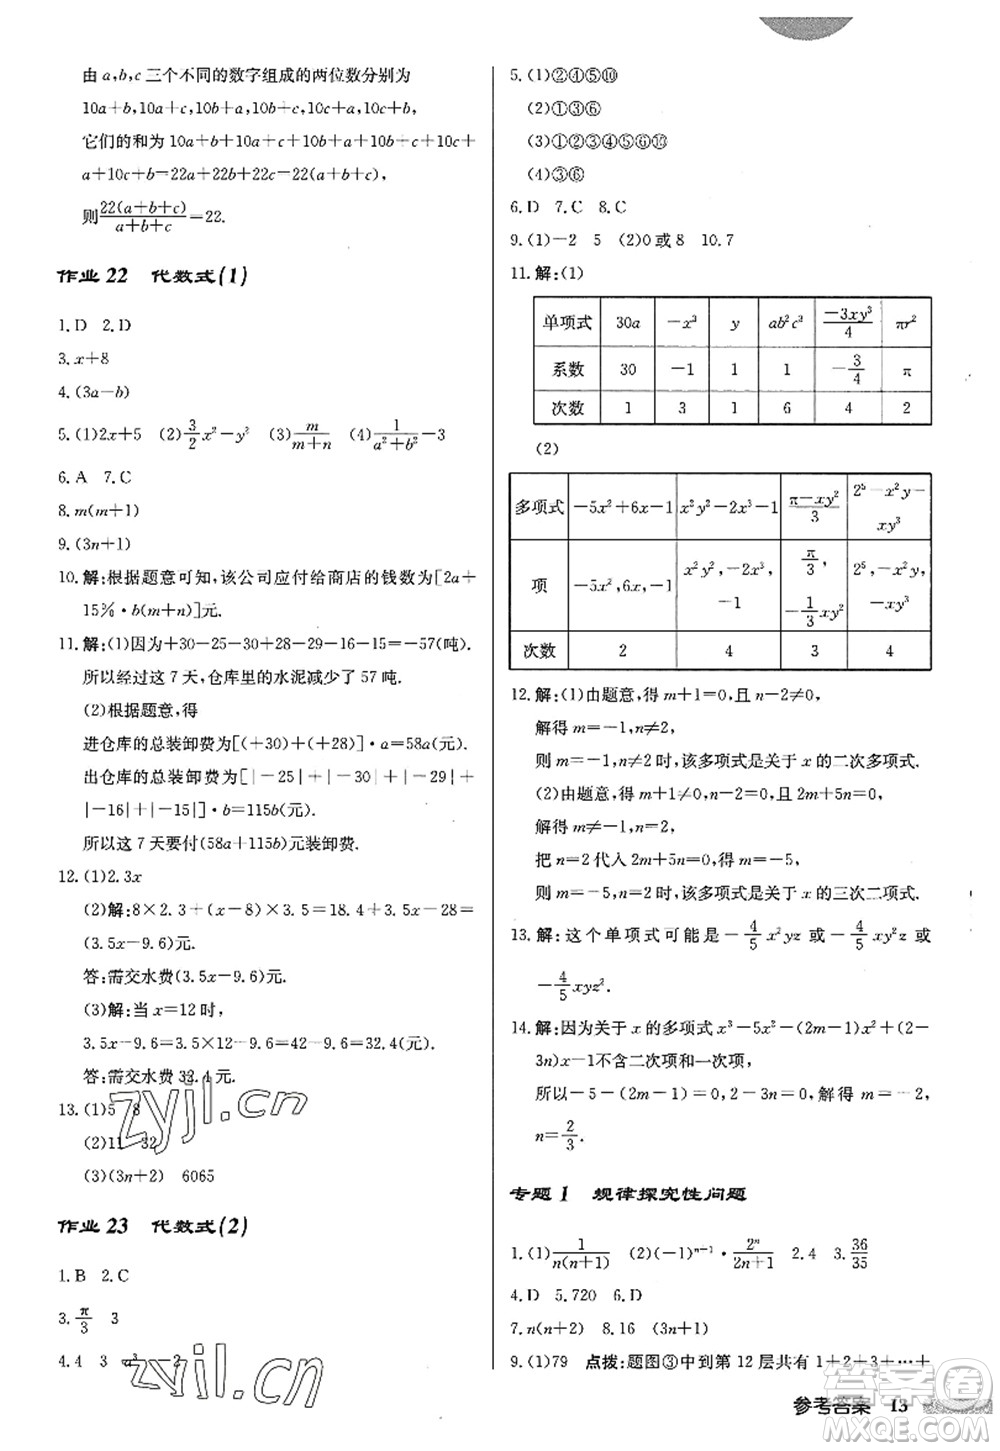 由 a,b,c 三个不同的数字组成的两位数分别为
10a+b,10a+c,10b+a,10b+c,10c+a,10c+b,
它们的和为 10a+b+10a+c+10b+a+10b+c+10c+
a+10c+b=22a+22b+22c=22(a+b+c),
则22(a+b+c)/a+b+c=22.
作业 22 代数式(1)
1.D 2.D
3.x+8
4.(3a-b)
5.(1)2x+5 (2)3/2x²-y² (3)m/m+n (4)1/a²+b²-3
6.A 7.C
8.m(m+1)
9.(3n+1)
10.解:根据题意可知,该公司应付给商店的钱数为[2a+
15%·b(m+n)]元.
11.解:(1)因为+30-25-30+28-29-16-15=-57(吨).
所以经过这 7 天,仓库里的水泥减少了 57 吨.
(2)根据题意,得
进仓库的总装卸费为[(+30)+(+28)]·a=58a(元).
出仓库的总装卸费为[|-25|+|-30|+|-29|+
|-16|+|-15|]·b=115b(元).
所以这 7 天要付(58a+115b)元装卸费.
12.(1)2.3x
(2)解:8×2.3+(x-8)×3.5=18.4+3.5x-28=
(3.5x-9.6)元.
答:需交水费(3.5x-9.6)元.
(3)解:当 x=12 时,
3.5x-9.6=3.5×12-9.6=32.4(元).
答:需交水费 32.4 元.
13.(1)5 8
(2)11 32
(3)(3n+2) 6065
作业 23 代数式(2)
1.B 2.C
3.π/3 3
4.4 3 a³ 2
5.(1)②④⑤⑩
(2)①③⑥
(3)①②③④⑤⑥⑩
(4)③⑥
6.D 7.C 8.C
9.(1)-2 5 (2)0或8 10.7
11.解:(1)
单项式 30a -x³ y ab²c³ -3xy³/4 πr²
系数 30 -1 1 1 -3/4 π
次数 1 3 1 6 4 2
(2)
多项式 -5x²+6x-1 x²y²-2x³-1 π-xy²/3 2⁵-x²y-xy³
项 -5x²,6x,-1 x²y²,-2x³,-1 π/3,-1/3xy² 2⁵,-x²y,-xy³
次数 2 4 3 4
12.解:(1)由题意,得 m+1=0,且 n-2≠0,
解得 m=-1,n≠2,
则 m=-1,n≠2 时,该多项式是关于 x 的二次多项式.
(2)由题意,得 m+1≠0,n=2,且 2m+5n=0,
解得 m≠-1,
把 n=2 代入 2m+5n=0,得 m=-5,
则 m=-5,n=2 时,该多项式是关于 x 的三次二项式.
13.解:这个单项式可能是-4/5x²yz 或-4/5xy²z 或
-4/5xyz².
14.解:因为关于 x 的多项式 x³-5x²-(2m-1)x²+(2-
3n)x-1不含二次项和一次项,
所以-5-(2m-1)=0,2-3n=0,解得 m=-2,
n=2/3.
专题 1 规律探究性问题
1.(1)1/n(n+1) (2)(-1)ⁿ⁺¹·2ⁿ/2n+1 2.4 3.36/35
4.D 5.720 6.D
7.n(n+2) 8.16 (3n+1)
9.(1)79 点拨:题图③中到第 12 层共有 1+2+3+…+
参考答案 13
zyjl.cn
zyjl.cn
答案圈